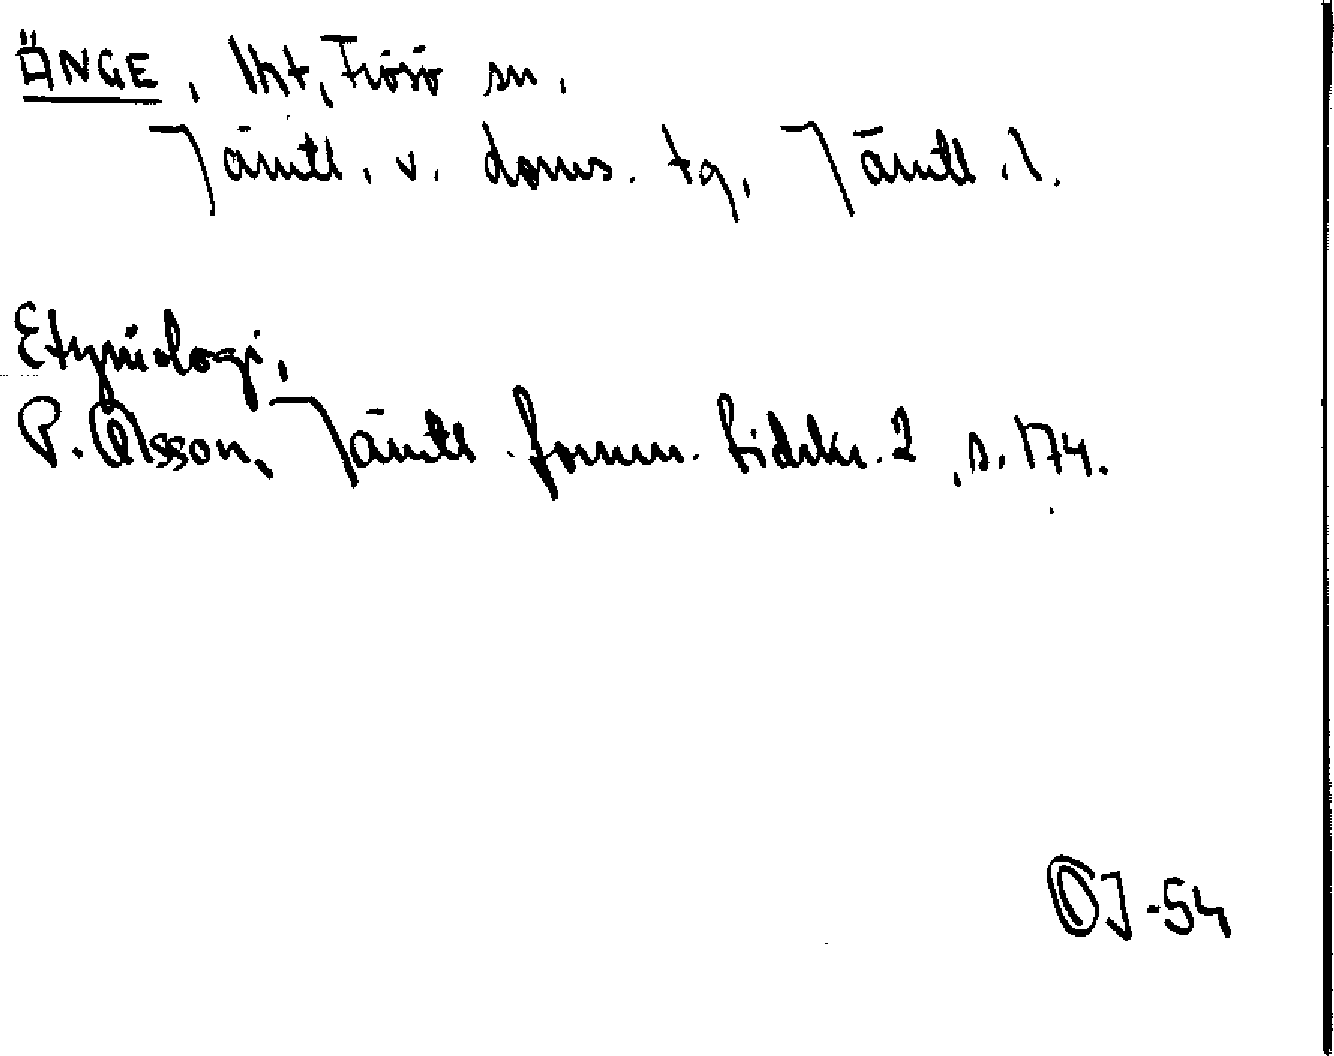 ÄNGE, lht, Frösö sn.
Jämtl. v. doms. tg, Jämtl. l.
Etymologi,
P. Olsson, Jämtl. fornm. tidskr. 2, s. 174.
OJ-54